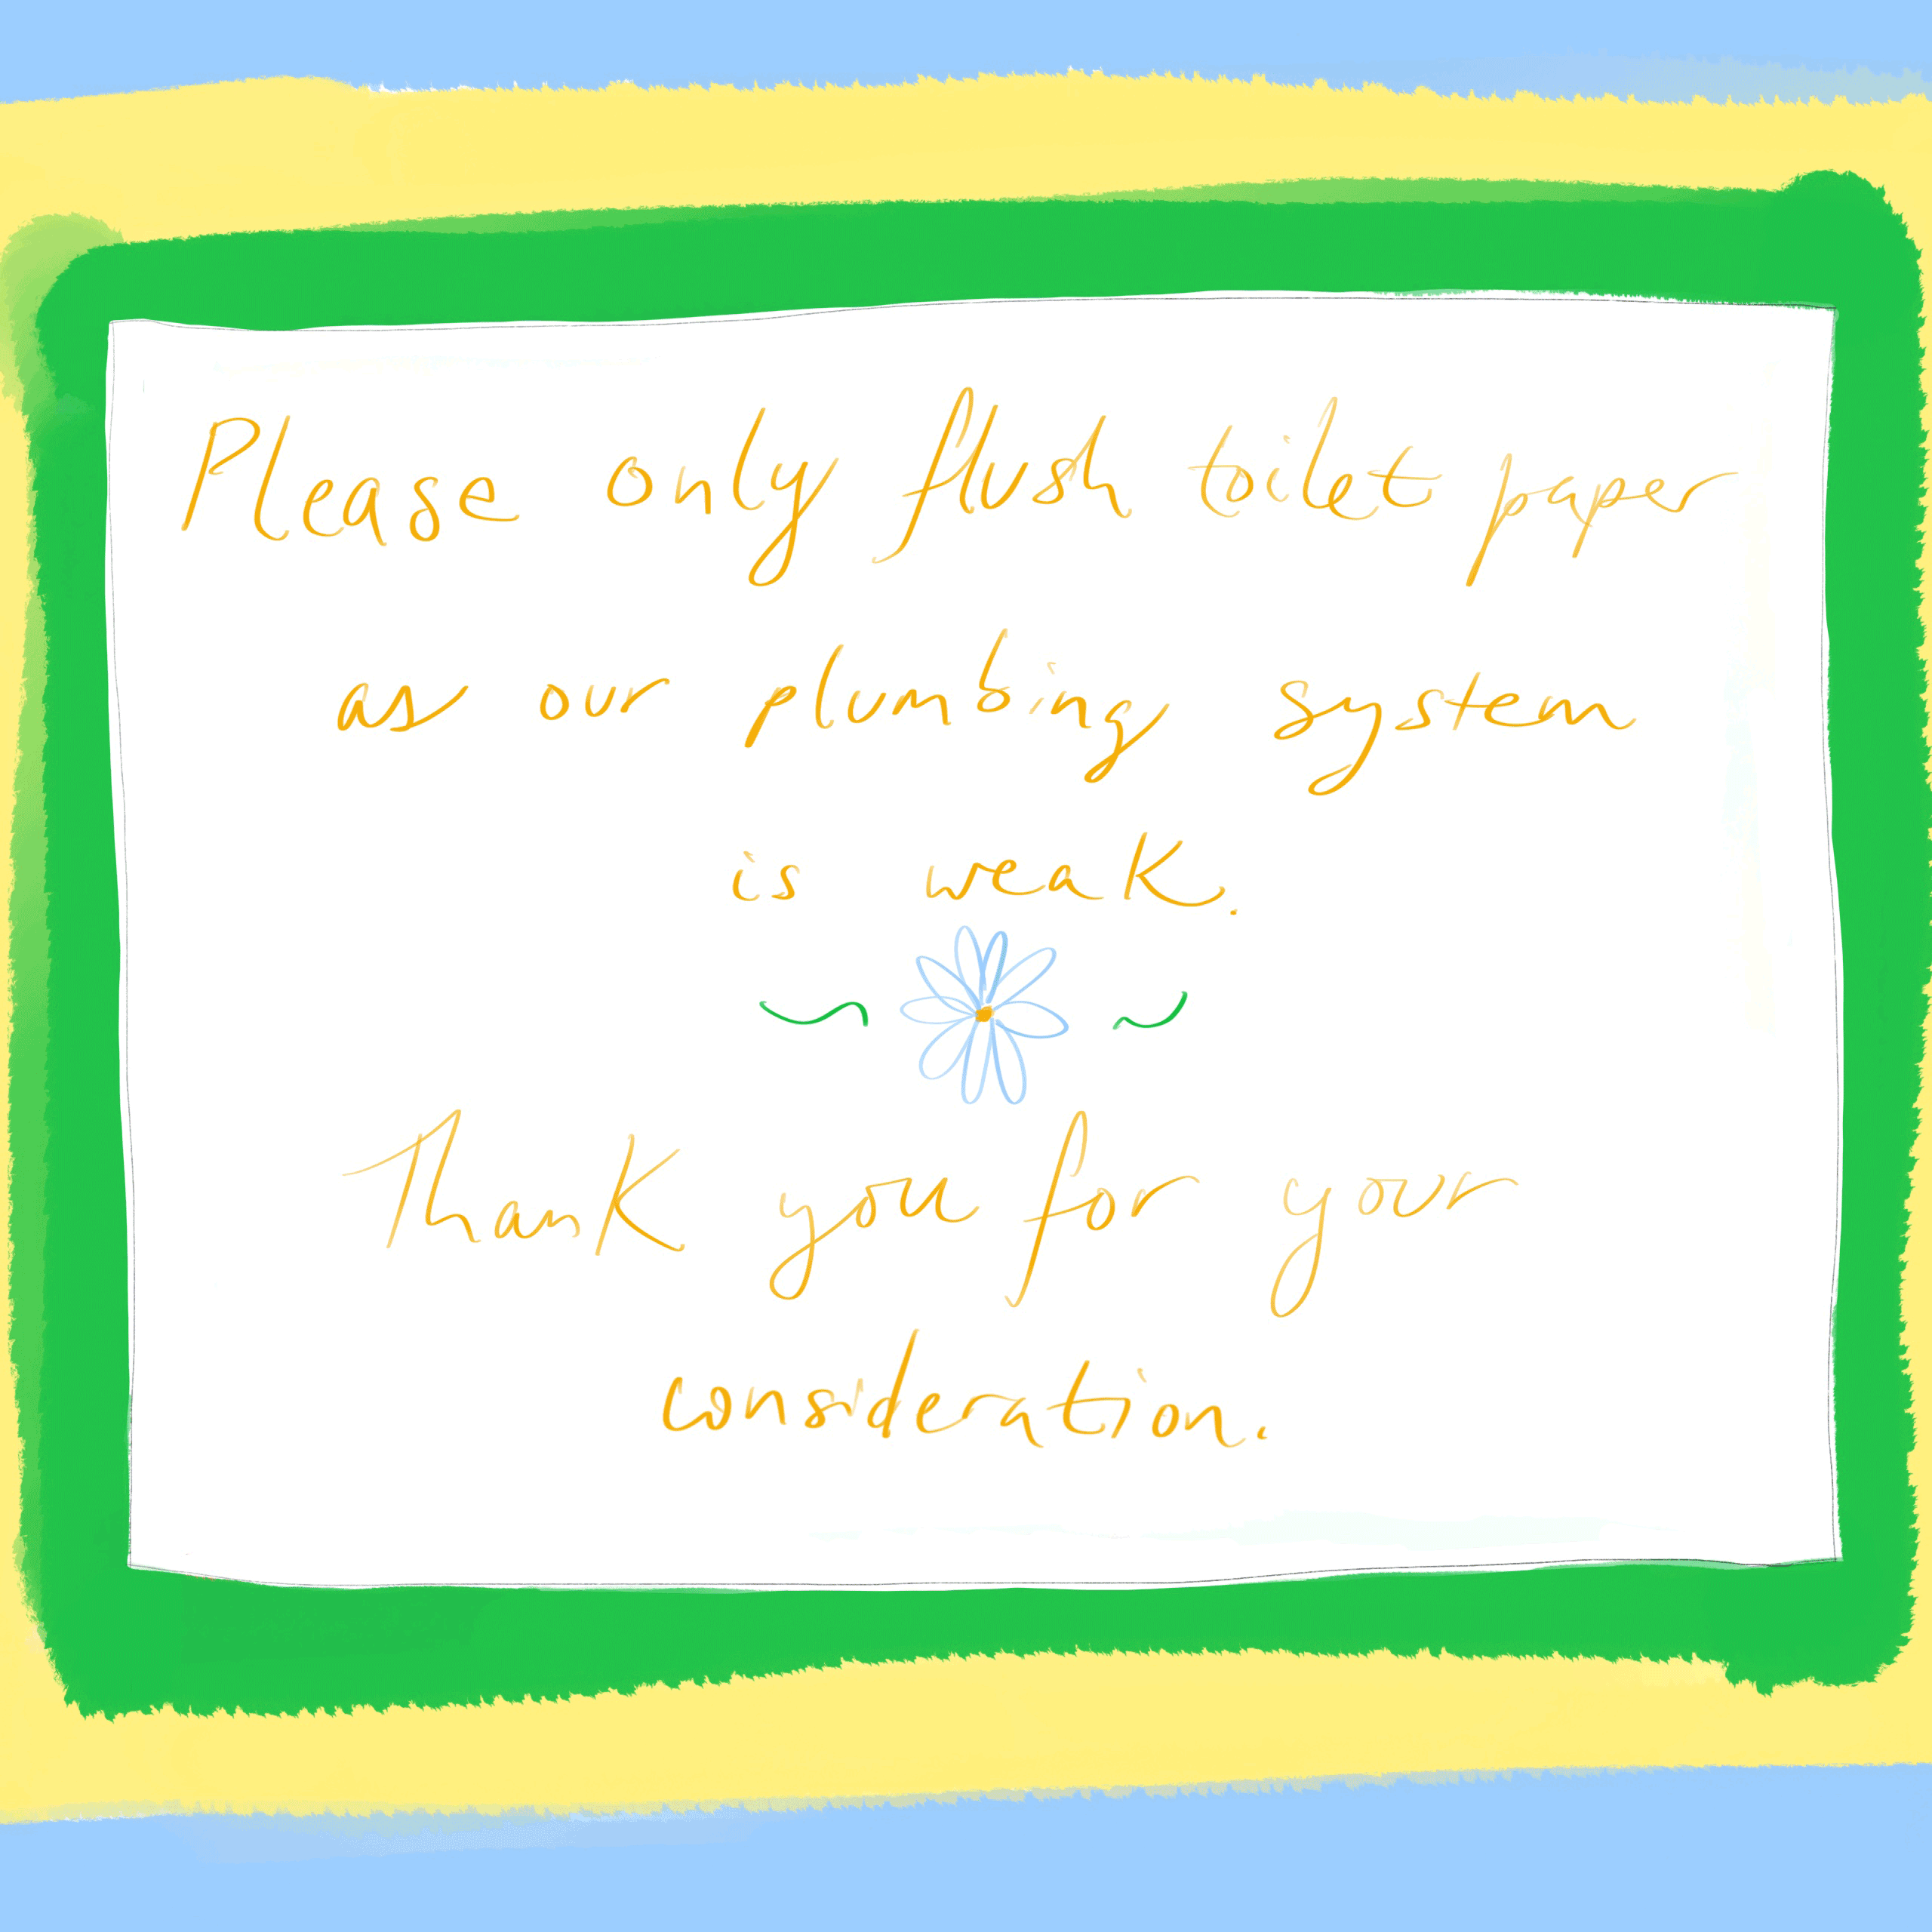 Please only flush toilet paper
as our plumbing system
is weak.
Thank you for your
consideration.